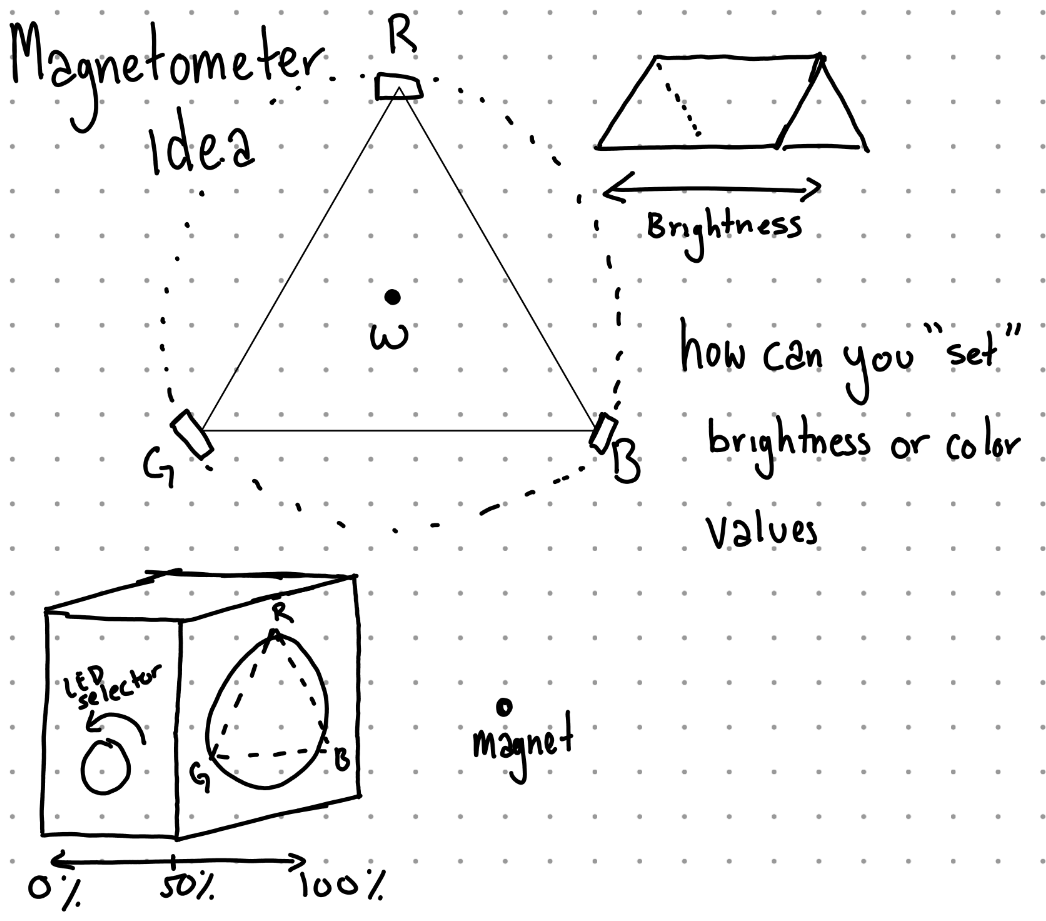 Magnetometer
Idea
R
W
G
B
Brightness
how can you "set"
brightness or color
values
LED
selector
R
G
B
magnet
0%
50%
100%